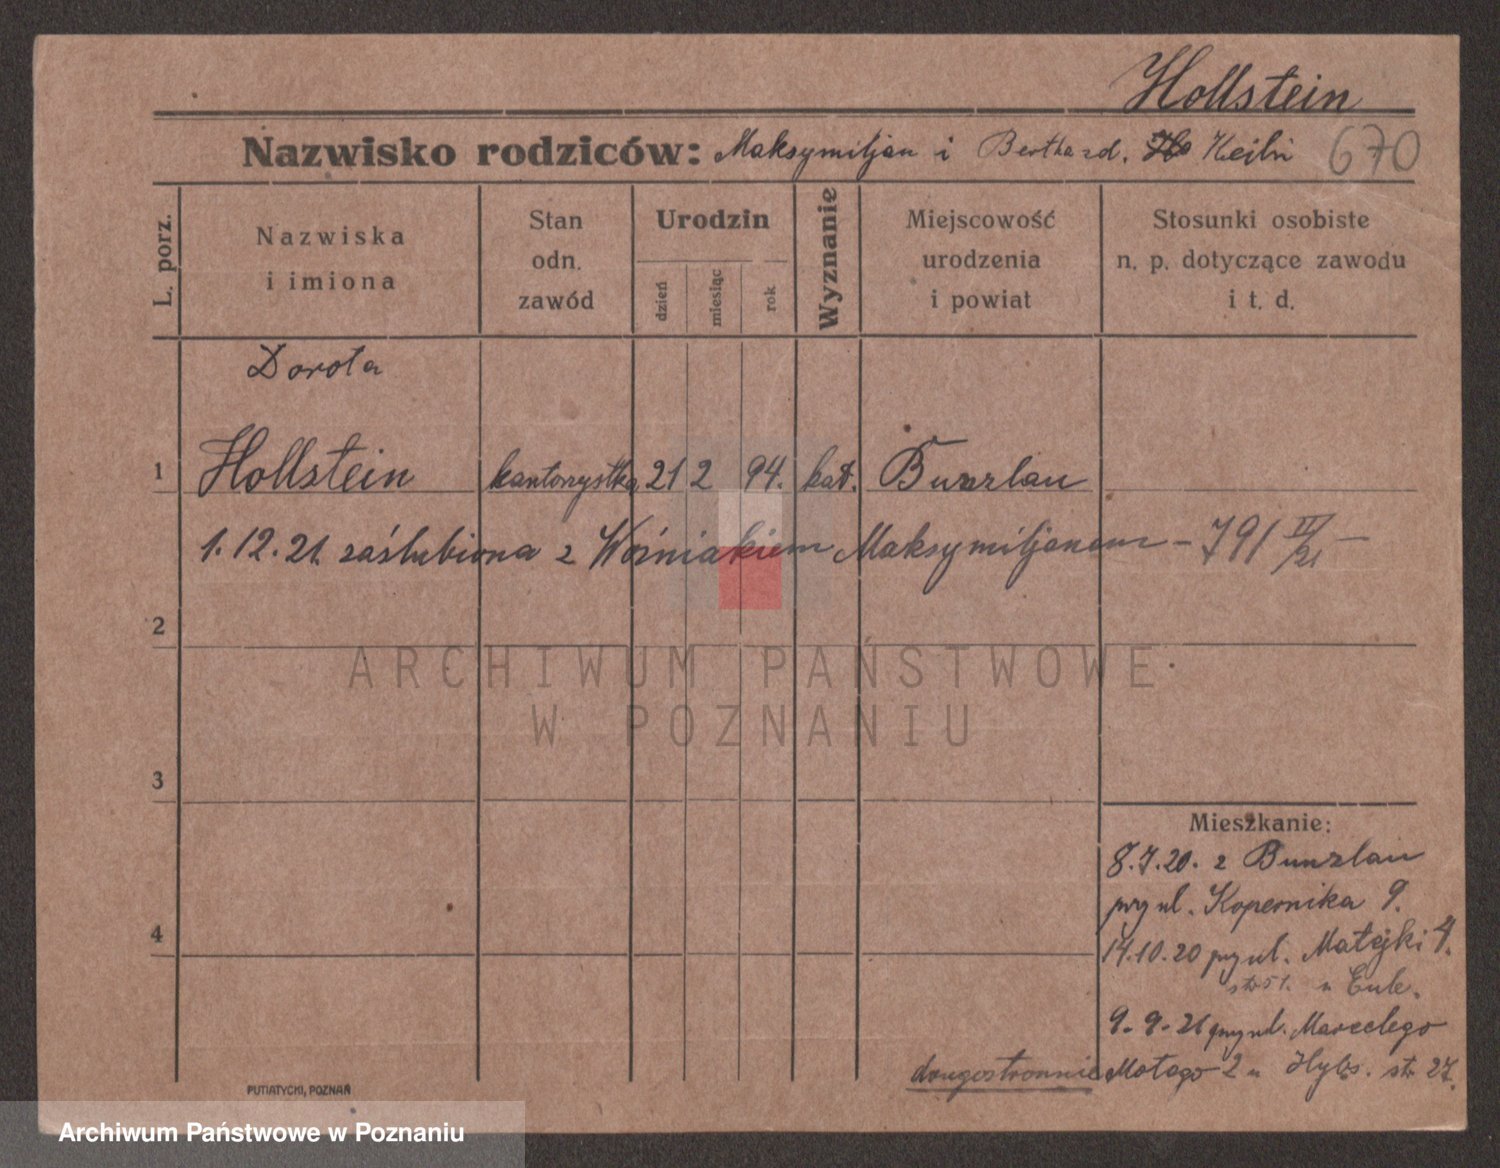 Hollstein
Nazwisko rodziców: Maksymiljan i Bertha zd. Keiln 670
L. porz.
Nazwiska
i imiona
Stan
odn.
zawód
Urodzin
dzień
miesiąc
rok
Wyznanie
Miejscowość
urodzenia
i powiat
Stosunki osobiste
n. p. dotyczące zawodu
i t. d.
Dorota
1 Hollstein kantorzystka 21 2 94. kat. Bunzlau
1.12.21. zaślubiona z Woźniakiem Maksymiljanem - 791 IV/21 -
2
ARCHIWUM PAŃSTWOWE
W POZNANIU
3
Mieszkanie:
8.7.20. z Bunzlau
przy ul. Kopernika 9.
4
14.10.20 przy ul. Matejki 4.
str 51. u Eule.
9.-9.-21 przy ul. Marcelego
drugostronnie Motego 2 u str 27.
PUTIATYCKI, POZNAŃ
Archiwum Państwowe w Poznaniu